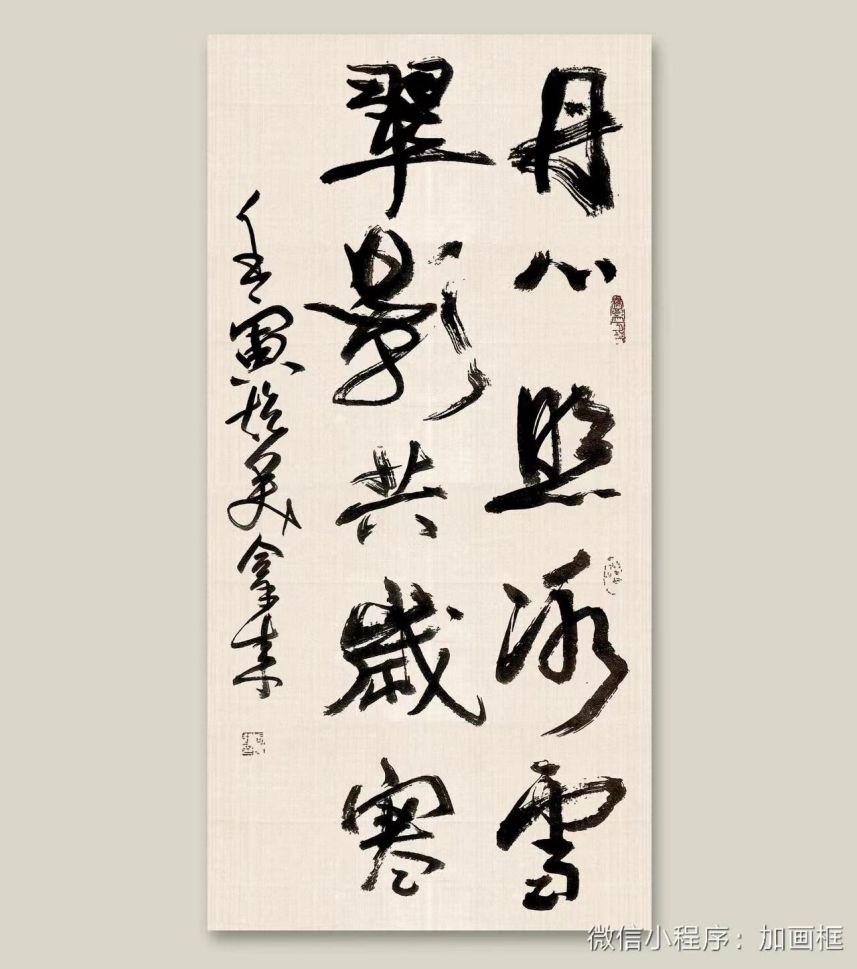 丹心照冰雪
翠影共歲寒
壬寅
微信小程序：加画框